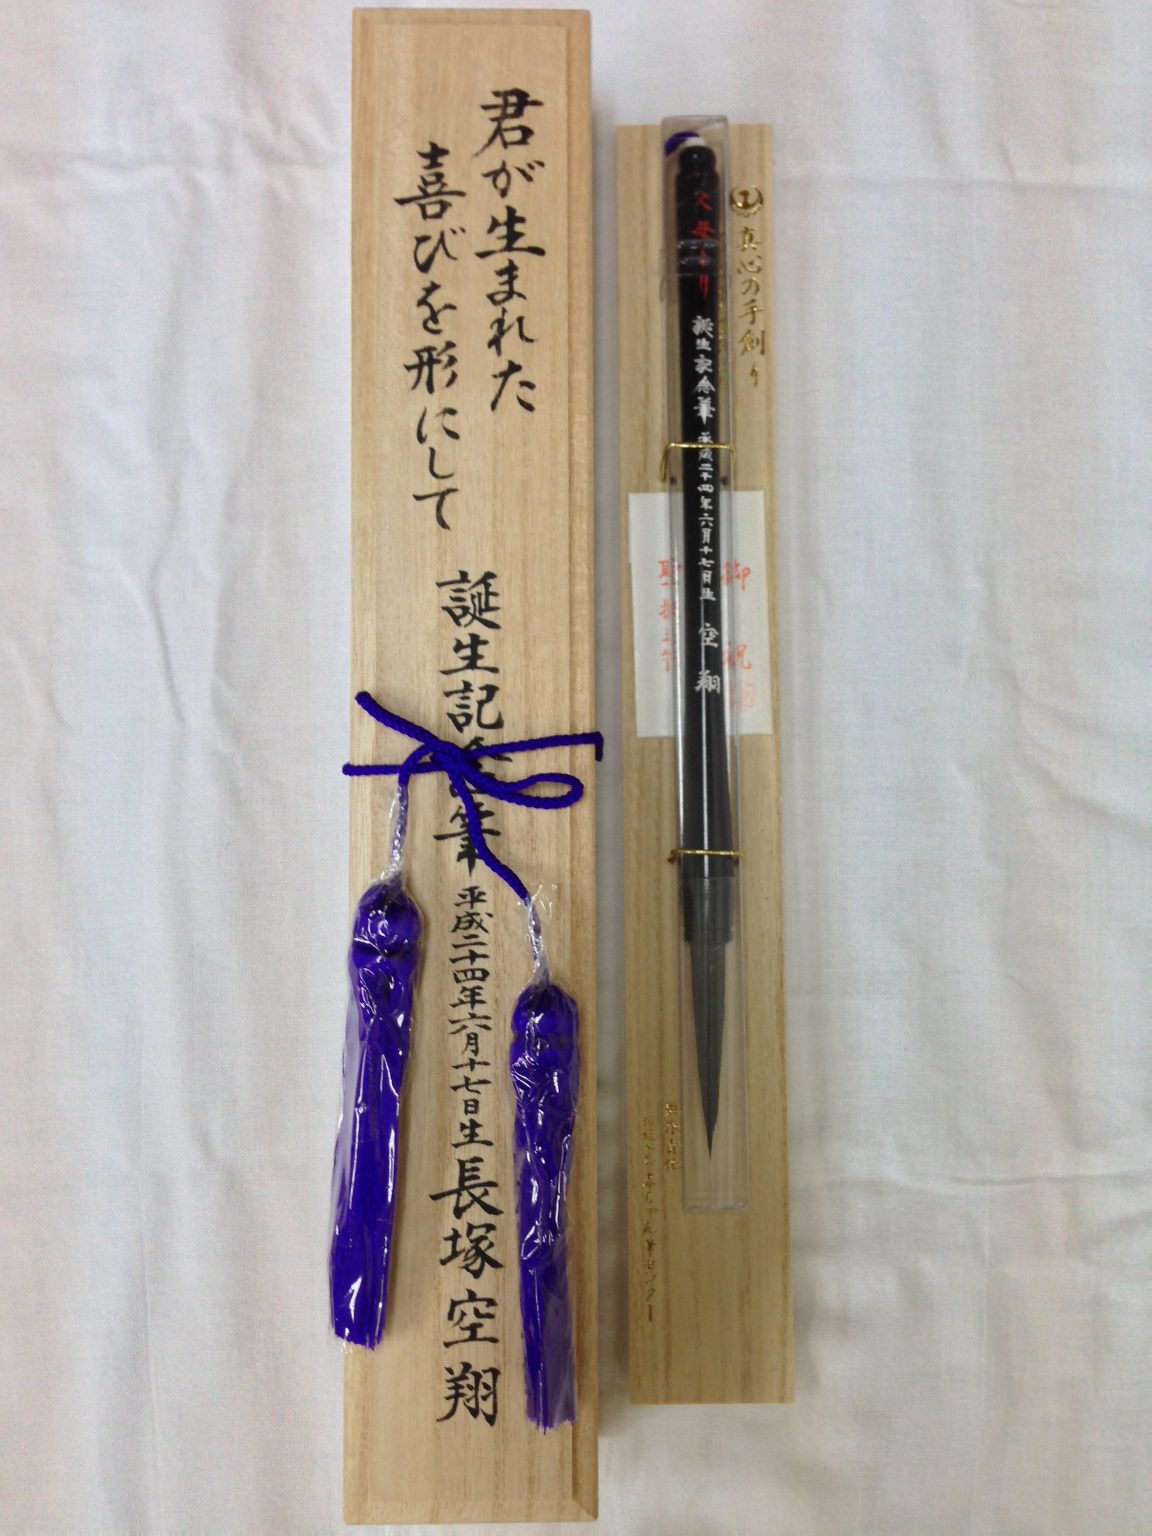 君が生まれた
喜びを形にして
誕生記念筆 平成二十四年六月十七日生 長塚空翔
真心の手創り
父母より 誕生記念筆 平成二十四年六月十七日生 空翔
御祝
赤ちゃん筆センター